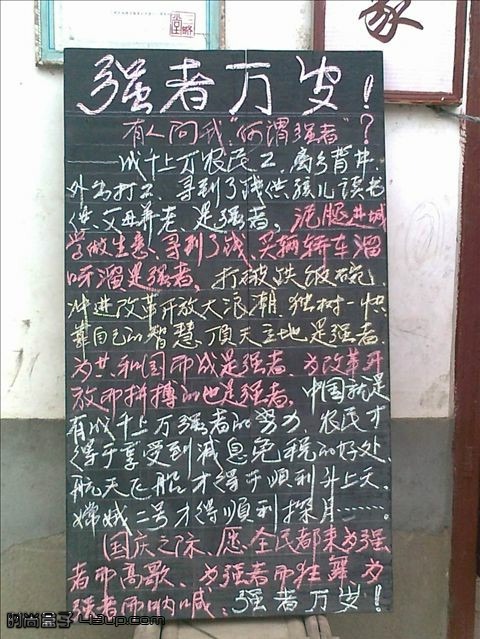 强者万岁!
有人问我:“何谓强者”?
——成千上万农民工,离乡背井,
外出打工、寻到了钱供孩儿读书
供父母养老、是强者。泥腿进城
学做生意、寻到了钱、买辆轿车溜
呀溜是强者。打破铁饭碗,
冲进改革开放大浪潮.独树一帜
靠自己的智慧、顶天立地是强者
为共和国而战是强者.为改革开
放而拼搏的也是强者。中国就是
有成千上万强者的努力、农民才
得于享受到减息免税的好处、
航天飞船才得于顺利斗上天、
嫦娥二号才得顺利探月……。
国庆之际、愿全民都来为强
者而高歌、为强者而狂舞为
强者而呐喊、强者万岁!
时尚盒子 43up.com